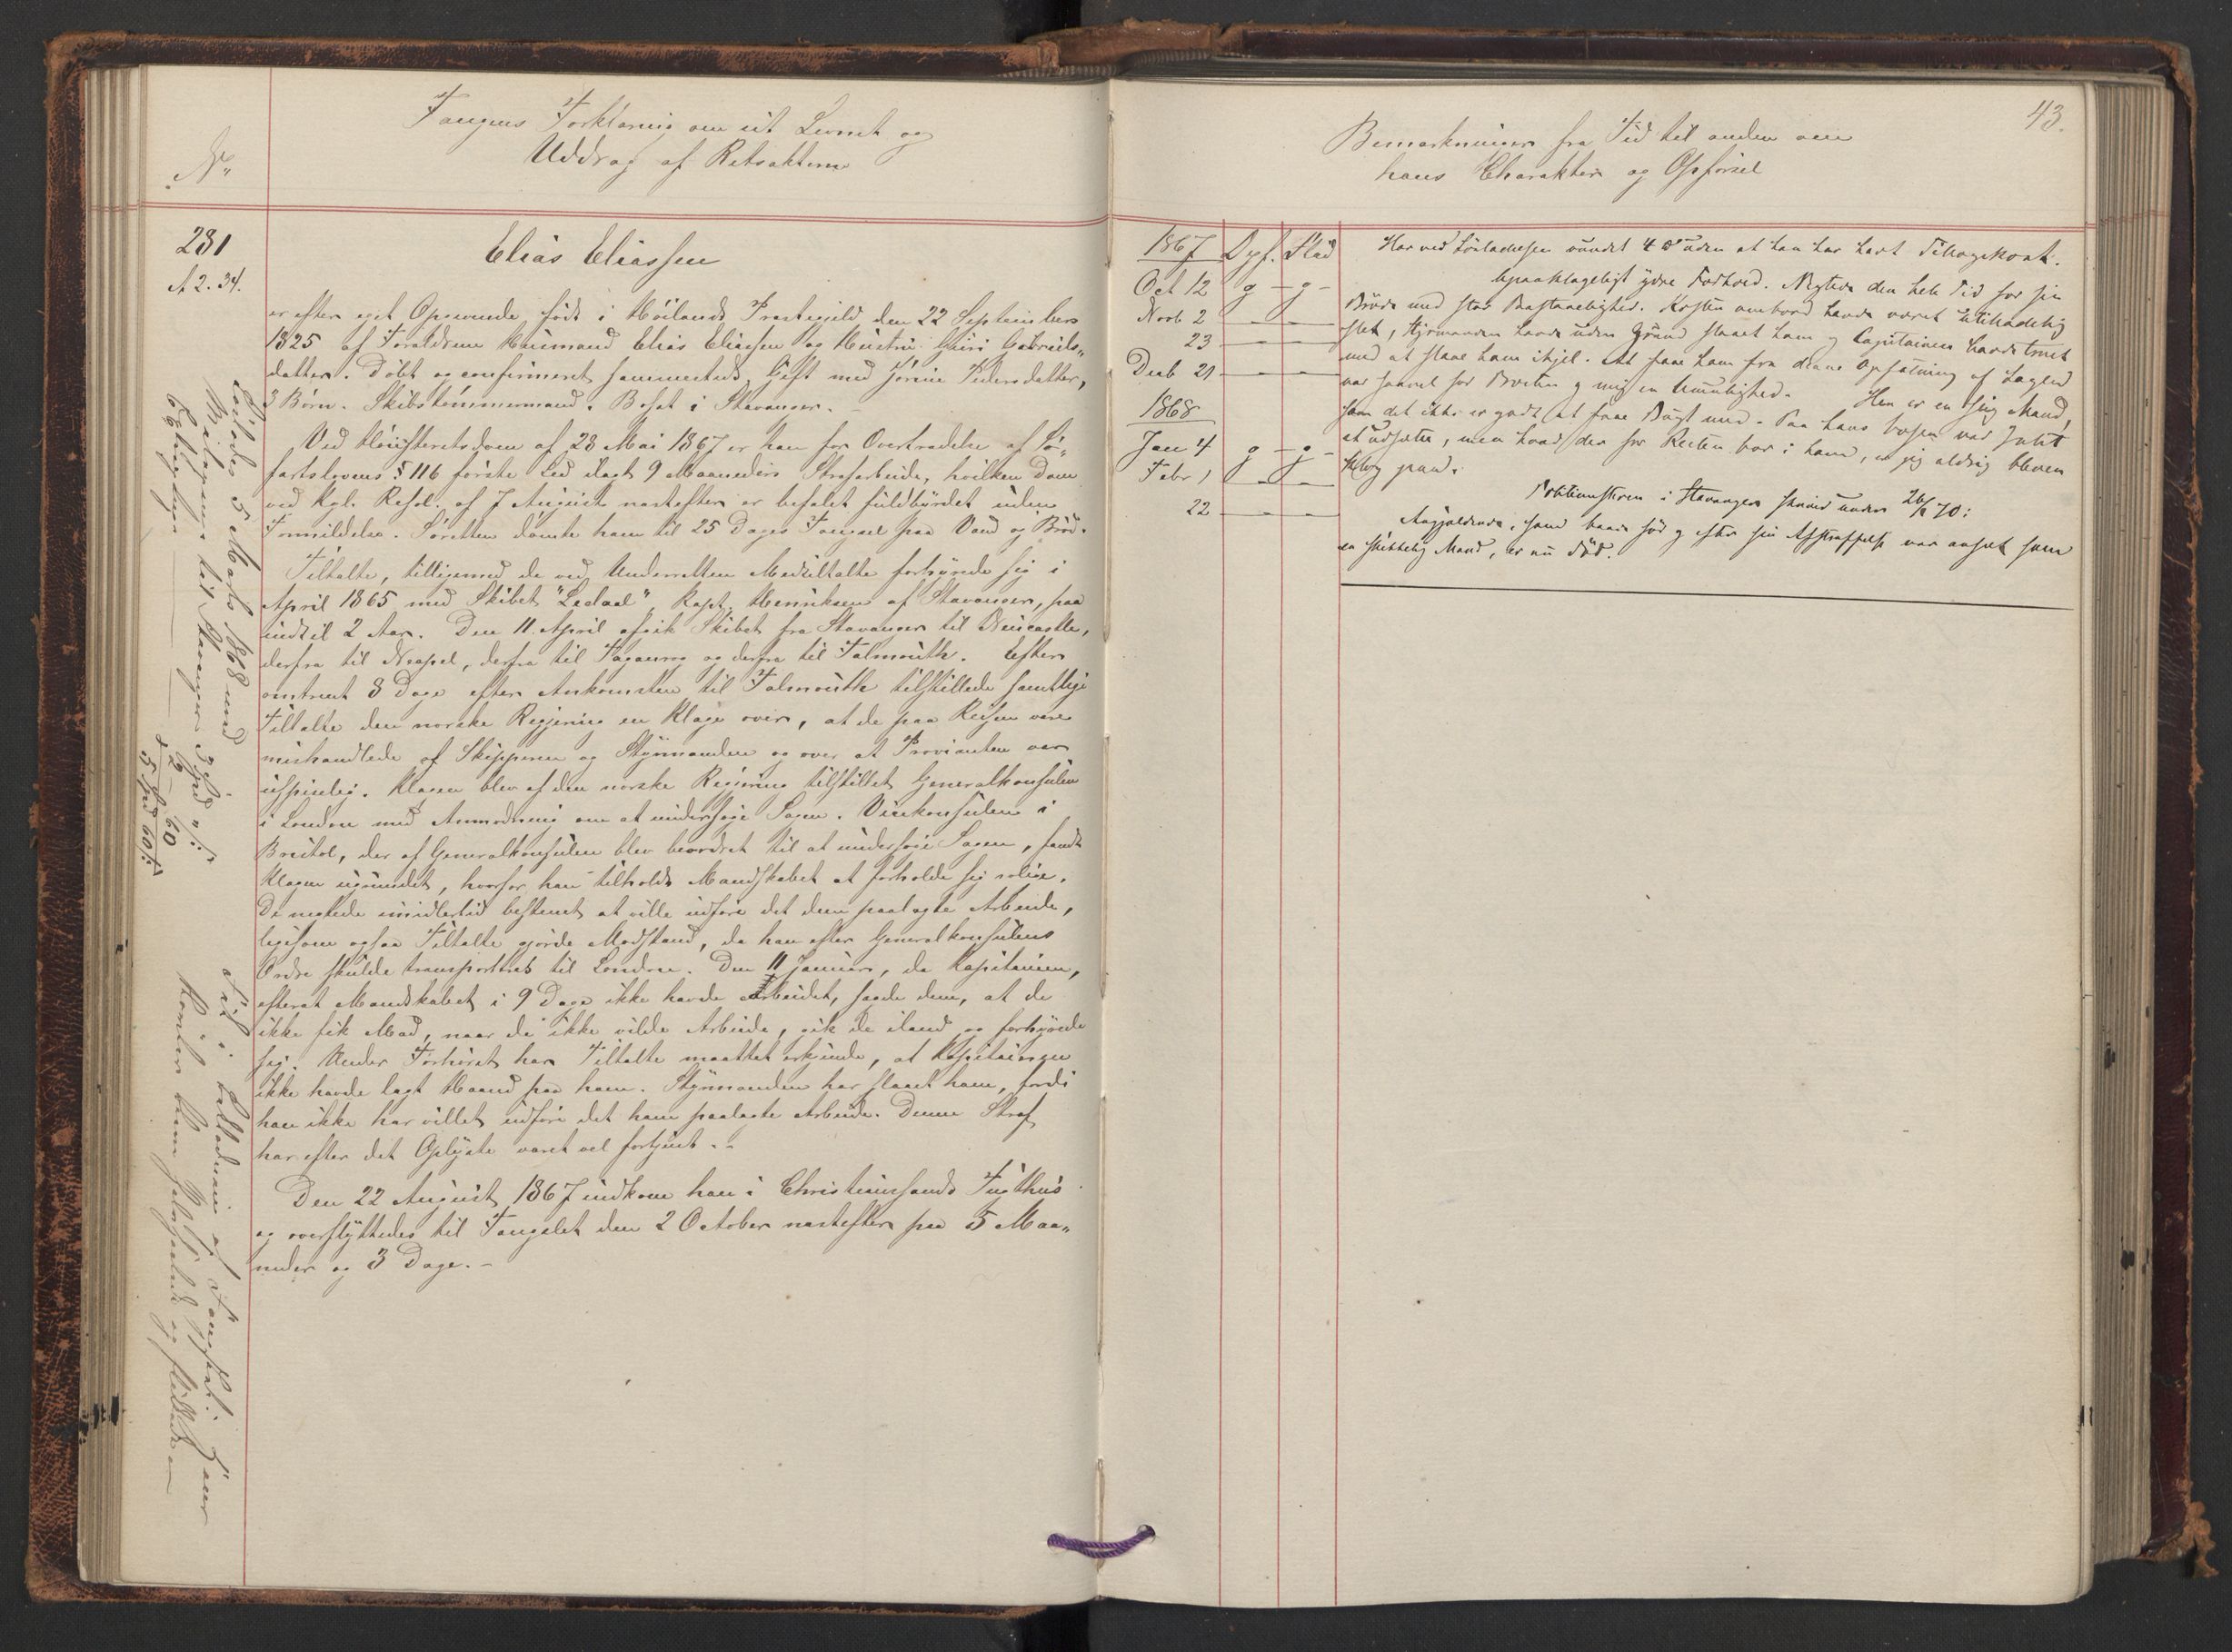 Fangens Forklaring om sit Levnet og
Uddrag af Retsakterne
No
231
A 2. 34.
Elias Eliassen
er efter eget Opgivende født i Höilands Præstegjeld den 22 Septembers
1825 af Forældrene Huusmand Elias Eliassen og Hustru Guri Gabriels„
datter. Döbt og confirmeret sammesteds. Gift med Jörine Pedersdatter,
3 Börn. Skibstömmermand. Bosat i Stavanger. –
Ved Höiesteretsdom af 28 Mai 1867 er han for Overtrædelse af Sö„
fartslovens § 116 förste Led ilagt 9 Maaneders Strafarbeide, hvilken Dom
ved Kgl. Resol. af 7 August næstefter er befalet fuldbyrdet uden
Formildelse. Söretten dömte ham til 25 Dages Fængsel paa Vand og Bröd.
Tiltalte, tilligemed de ved Underretten Medtiltalte forhyrede sig i
April 1865 med Skibet "Ledaal", Kapt. Henriksen af Stavanger, paa
indtil 2 Aar. Den 11. April afgik Skibet fra Stavanger til Newcastle,
derfra til Neapel, derfra til Taganrog og derfra til Falmouth. Efter
omtrent 8 Dage efter Ankomsten til Falmouth tilstillede samtlige
Tiltalte den norske Regjering en Klage over, at de paa Reisen vare
mishandlede af Skipperen og Styrmanden og over at Provianten var
uspiselig. Klagen blev af den norske Regjering tilstillet Generalkonsulen
i London med Anmodning om at undersöge Sagen. Vicekonsulen i
Bristol, der af Generalkonsulen blev beordret til at undersöge Sagen, fandt
Klagen ugrundet, hvorfor han tilholdt Mandskabet at forholde sig rolige.
De negtede imidlertid bestemt at ville udföre det dem paalagte Arbeide,
ligesom ogsaa Tiltalte gjorde Modstand, da han efter Generalkonsulens
Ordre skulde transporteres til London. Den 11 Januar, da Kapitainen,
efterat Mandskabet i 9 Dage ikke havde arbeidet, sagde dem, at de
ikke fik Mad, naar de ikke vilde Arbeide, gik de iland og forhyrede
sig. Under Forhöret har Tiltalte maattet erkjende, at Kapitainen
ikke havde lagt Haand paa ham. Styrmanden har slaaet ham, fordi
han ikke har villet udföre det ham paalagte Arbeide. Denne Straf
har efter det Oplyste været vel fortjent. –
Den 22 August 1867 indkom han i Christianssands Tugthus
og overflyttedes til Fængslet den 2 October næstefter paa 5 Maa„
neder og 3 Dage. –
Löslodes 5 Marts 1868 med
Reisepenge til Stavanger 3 Spd „ ß.
2 60
5 Spd 60 ß.
43.
Bemærkninger fra Tid til anden om
hans Charakter og Opförsel
1867 Opf. Flid
Oct 12 g – g –
Novb 2 – –
23 – –
Decb 21 – –
1868
Jan 4 g – g –
Febr 1 – –
22 – –
Har ved Lösladelsen vundet 4 ℔ uden at han har havt Tillægskost.
Upaaklageligt ydre Forhold. Negtede den hele Tid for sin
Bröde med stor Paastaaelighed. Kosten ombord havde været utilstrækkelig
slet, Styrmanden havde uden Grund slaaet ham og Capitainen havde truet
med at slaae ham ihjel. At faae ham fra denne Opfatning af Sagen
var saavel for Præsten og mig en Umulighed. Han er en Mand,
som det ikke er godt at faae Bugt med. Paa hans Væsen var Intet
at udsætte, men hvad der for Resten bor i ham, er jeg aldrig bleven
klog paa.
Politimesteren i Stavanger skrivd under 26/1 70:
Angjældende, som baade för og efter sin Afstraffelse var anseet som
en skikkelig Mand, er nu död.